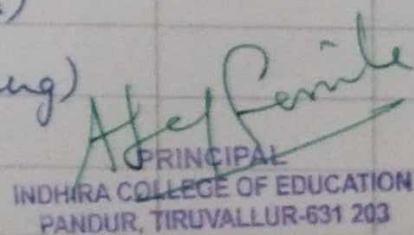 ng)
PRINCIPAL
INDHIRA COLLEGE OF EDUCATION
PANDUR, TIRUVALLUR-631 203